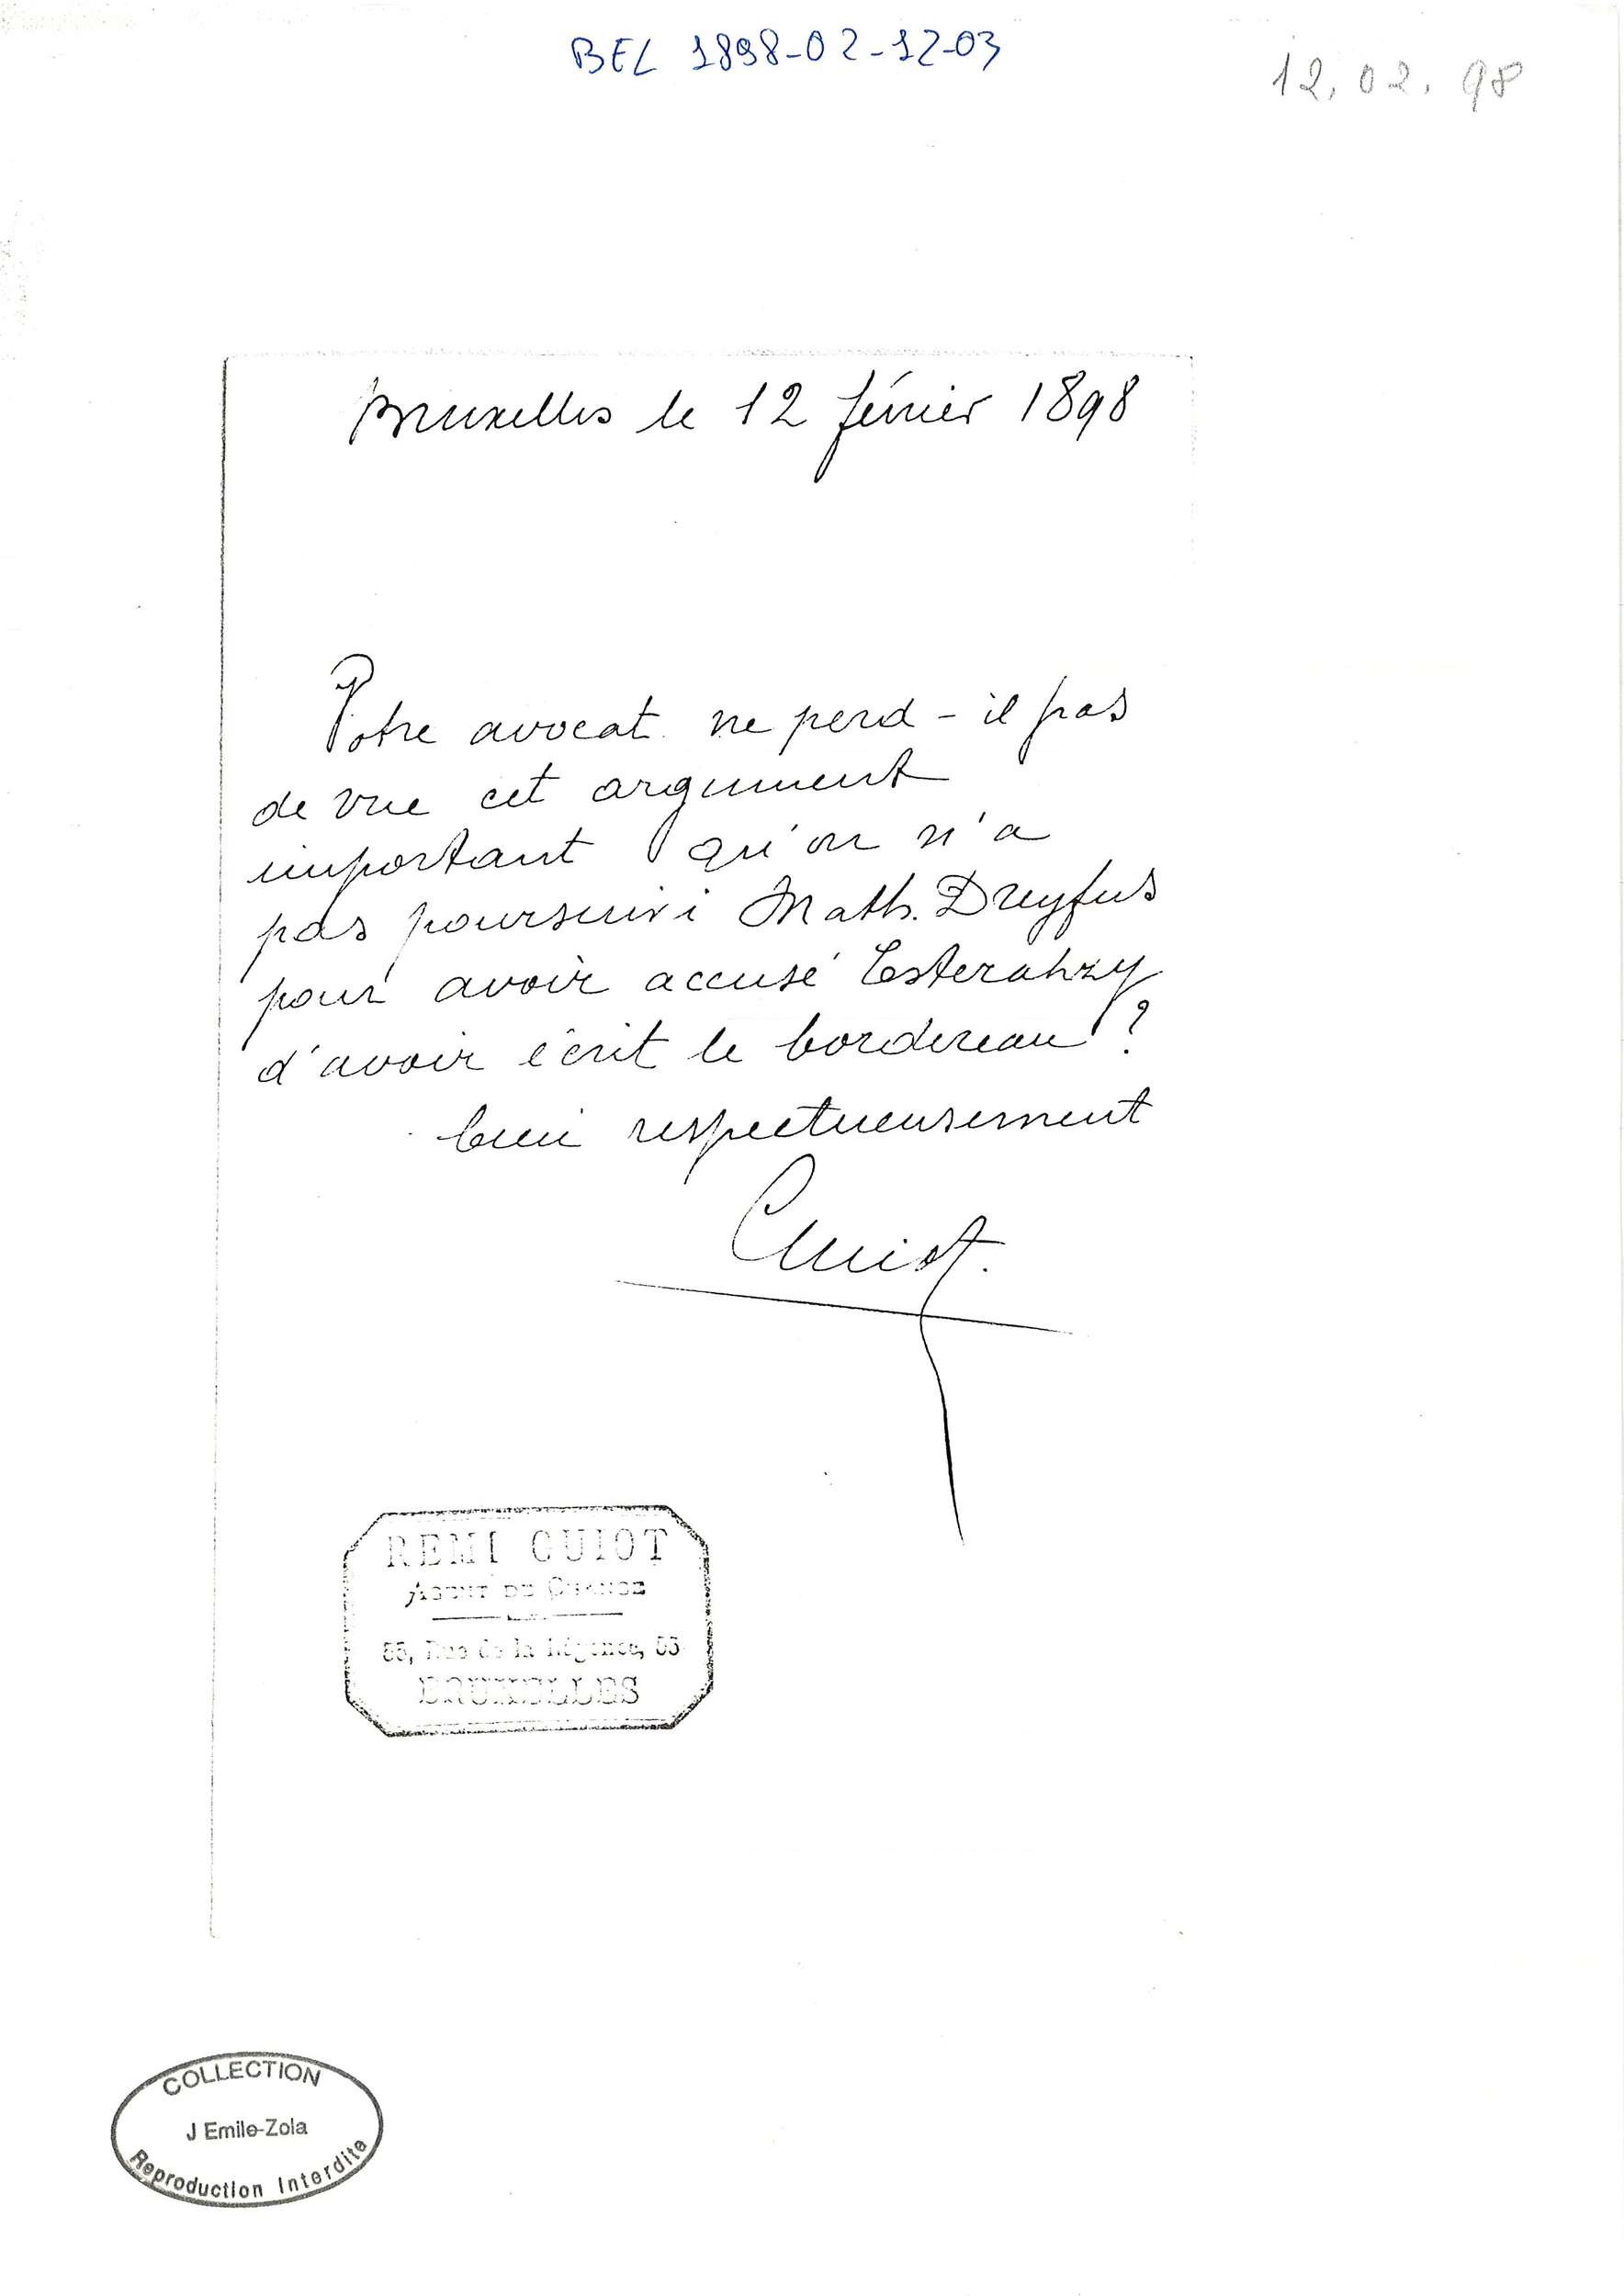 BEL 1898-02-12-03
12.02.98
Bruxelles le 12 février 1898
Votre avocat ne perd-il pas
de vue cet argument
important qu'on n'a
pas poursuivi Math. Dreyfus
pour avoir accusé Esterahzy
d'avoir écrit le bordereau ?
bien respectueusement
Cuiot.
REMI CUIOT
AGENT DE CHANGE
55, Rue de la Régence, 55
BRUXELLES
COLLECTION
J Emile-Zola
Reproduction Interdite